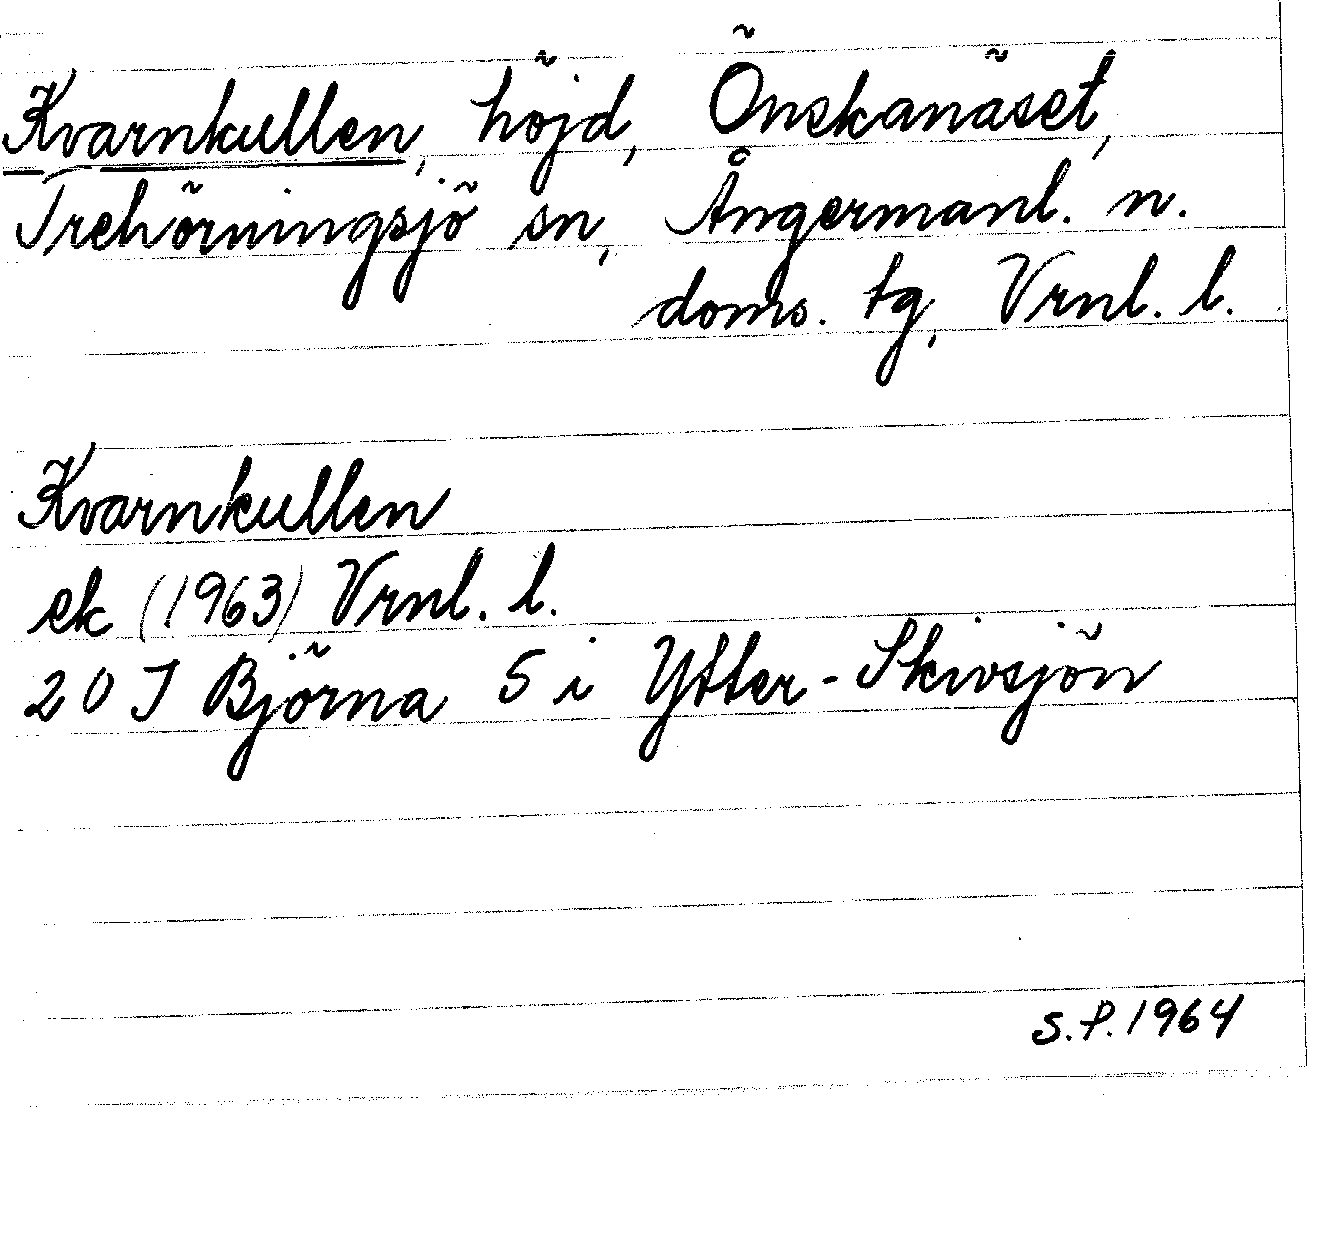 Kvarnkullen, höjd, Önskanäset,
Trehörningsjö sn, Ångermanl. n.
doms. tg, Vrnl. l.
Kvarnkullen
ek (1963) Vrnl. l.
20 J Björna 5 i Ytter-Skivsjön
S.P. 1964